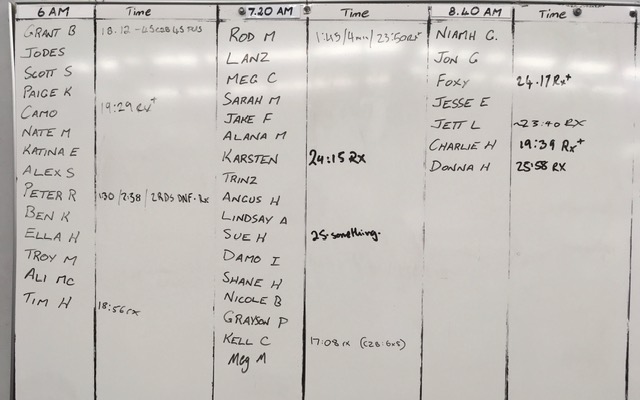 6 AM Time 7.20 AM Time 8.40 AM Time
GRANT B 18.12
JODES
SCOTT S
PAIGE K
CAMO 19:29 RX+
NATE M
KATINA E
ALEX S
PETER R 1:30 / 2:38 / 2RDS DNF. RX
BEN K
ELLA H
TROY M
ALI MC
TIM H 18:56 RX
ROD M 1:45/4min/23:50RX+
LANZ
MEG C
SARAH M
JAKE F
ALANA M
KARSTEN 24:15 RX
TRINZ
ANGUS H
LINDSAY A
SUE H 25-something.
DAMO I
SHANE H
NICOLE B
GRAYSON P
KELL C 17:08 rx
Meg M
NIAMH G.
JON G
FOXY 24.17 RX+
JESSE E
JETT L ~23:40 RX
CHARLIE H 19:39 RX+
DONNA H 25:58 RX